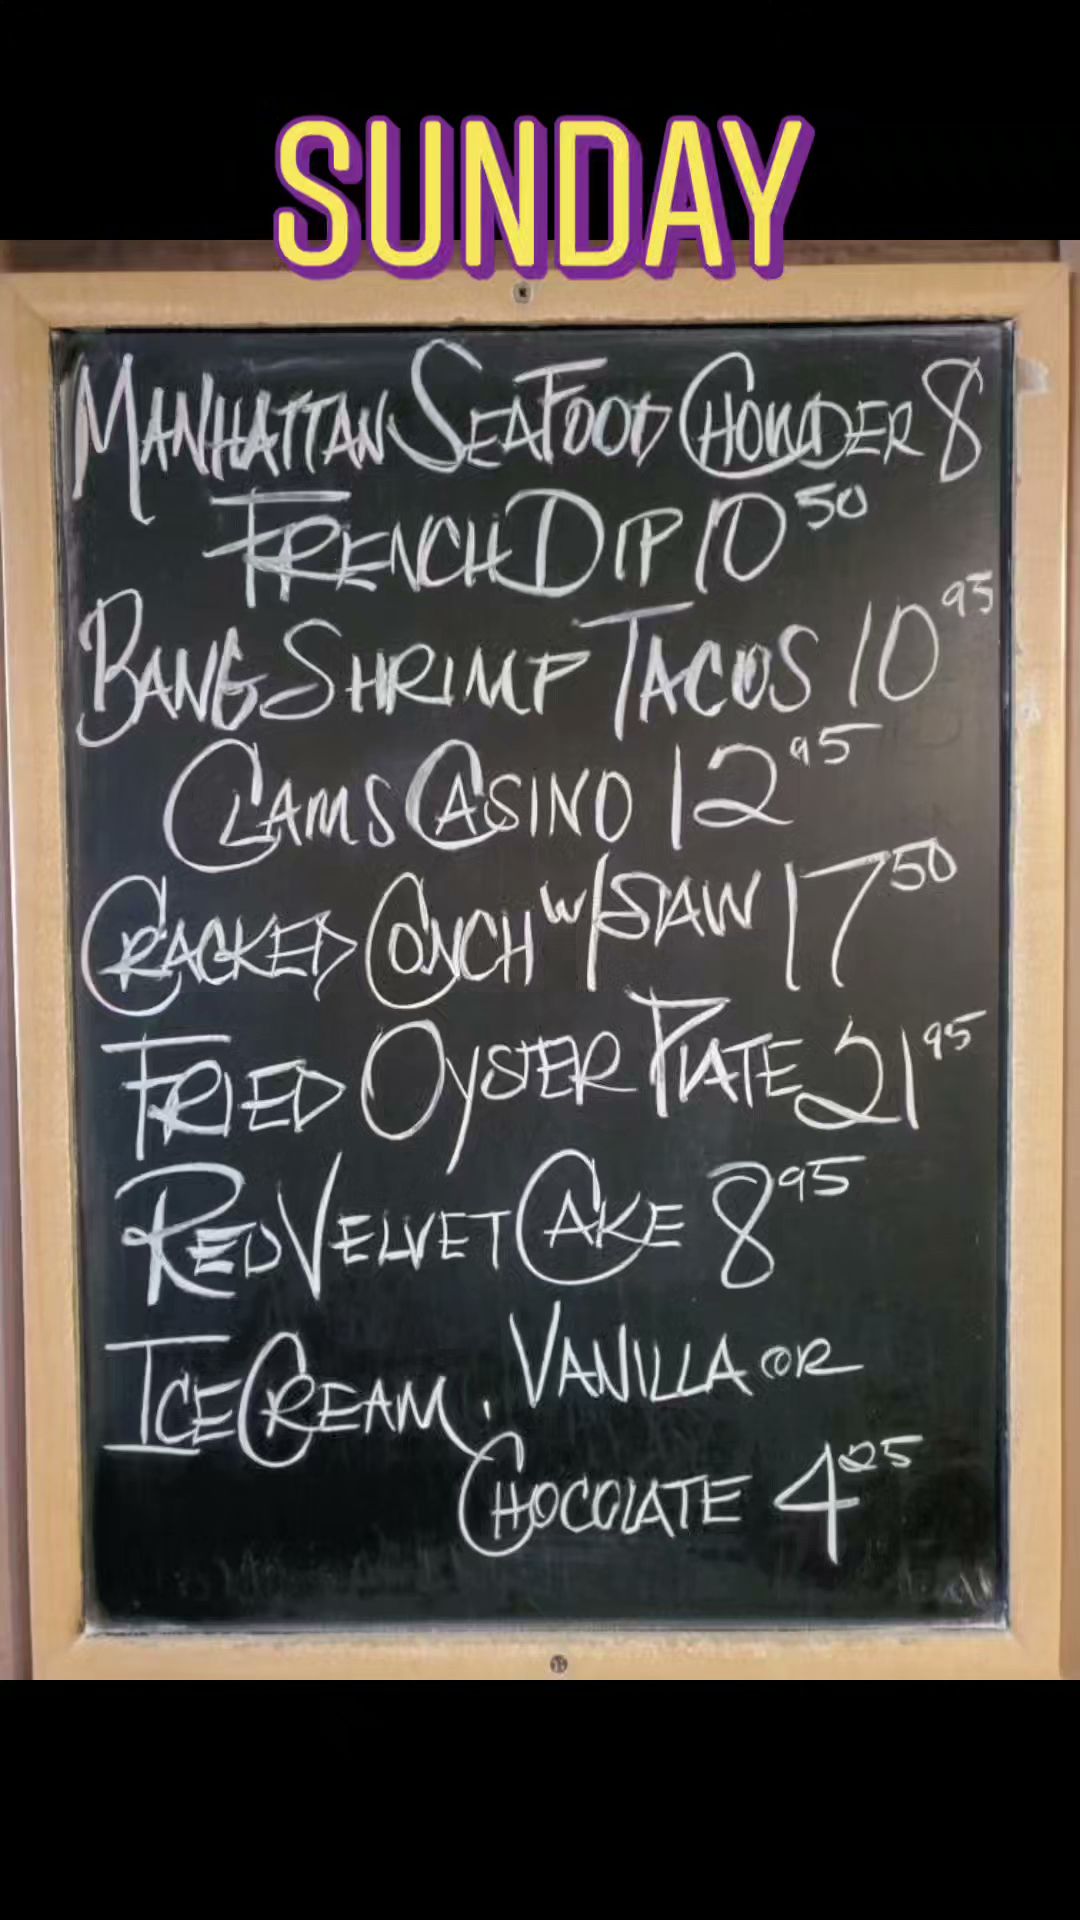 SUNDAY
MANHATTAN SEAFOOD CHOWDER 8
FRENCH DIP 10 50
BANG SHRIMP TACOS 10 95
CLAMS CASINO 12 95
CRACKED CONCH W/SLAW 17 50
FRIED OYSTER PLATE 21 95
RED VELVET CAKE 8 95
ICE CREAM. VANILLA OR
CHOCOLATE 4 25